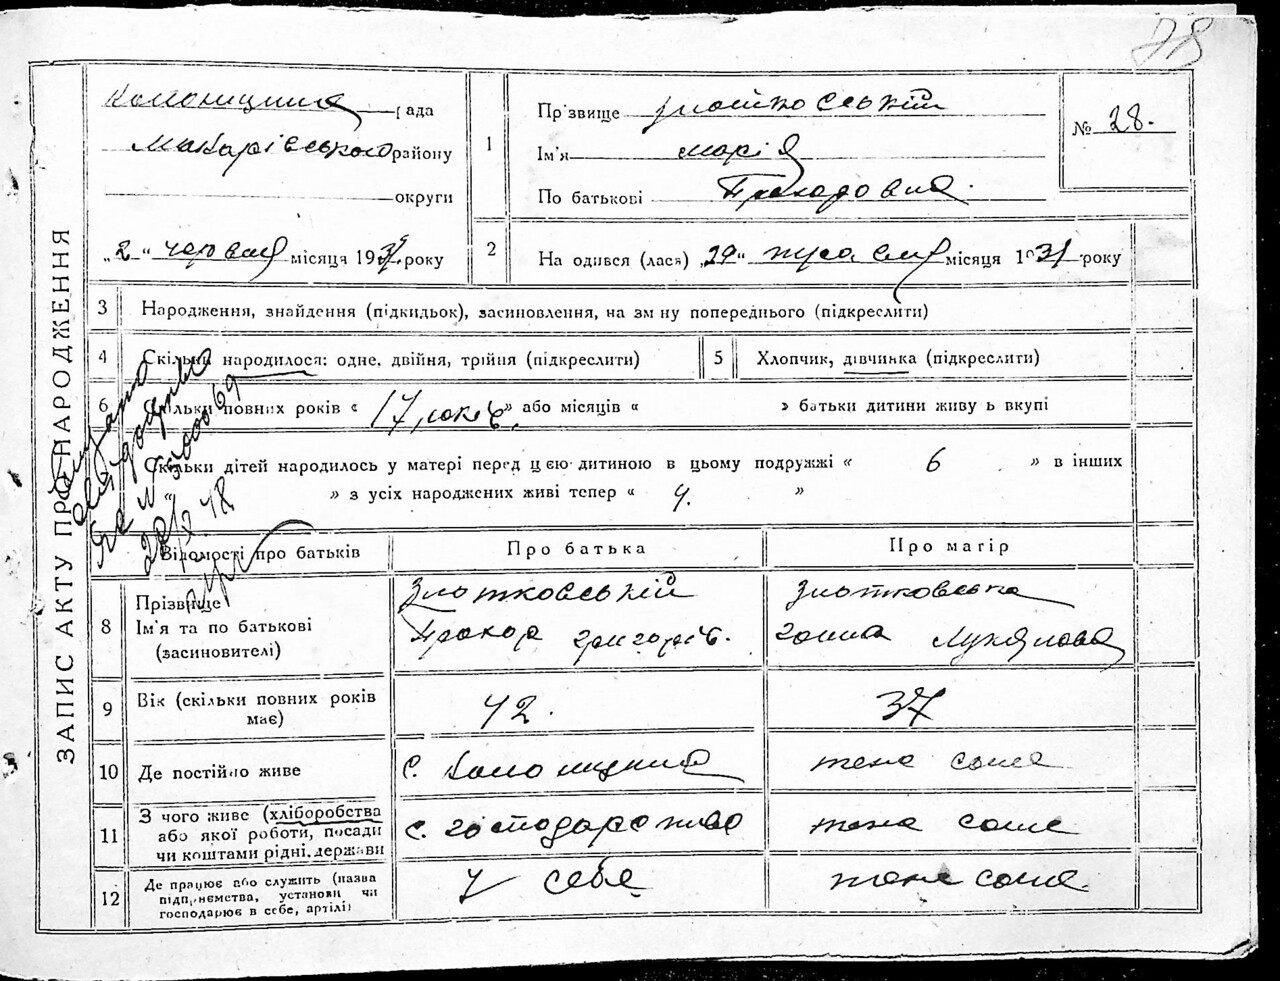 78
ЗАПИС АКТУ ПРО НАРОДЖЕННЯ
Колонщина рада
Макарівського району
округи
„2" червня місяця 1931 року
1
Прізвище Злотковський
Ім'я Марія
По батькові Прохоровна
№ 28.
2
На одився (лася) „29" травня місяця 1931 року
3 Народження, знайдення (підкидьок), засиновлення, на зм ну попереднього (підкреслити)
4 Скільки народилося: одне, двійня, трійня (підкреслити)
5 Хлопчик, дівчинка (підкреслити)
6 кільки повних років « 17 років » або місяців « » батьки дитини живу ь вкупі
Скільки дітей народилось у матері перед цією дитиною в цьому подружжі « 6 » в інших
« » з усіх народжених живі тепер « 4. »
Відомості про батьків
Про батька
Про матір
8
Прізвище
Ім'я та по батькові
(засиновителі)
Злотковський
Прохор Григорів.
Злотковська
Ганна Лукянова
9
Вік (скільки повних років має)
42.
37
10
Де постійно живе
с. Колонщина
тена сама
11
З чого живе (хліборобства
або якої роботи, посади
чи коштами рідні, держави
с. господарство
тена саме
12
Де працює або служить (назва
підприємства, установи чи
господарює в себе, артілі)
у себе
тена саме.